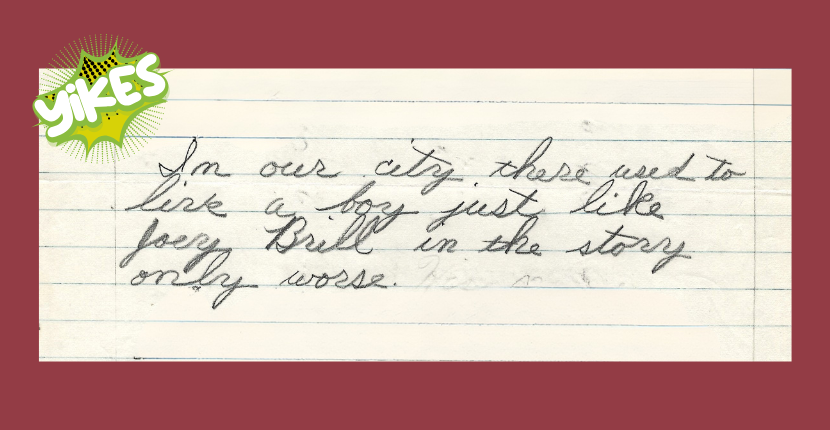 YIKES
In our city there used to
live a boy just like
Joey Brill in the story
only worse.